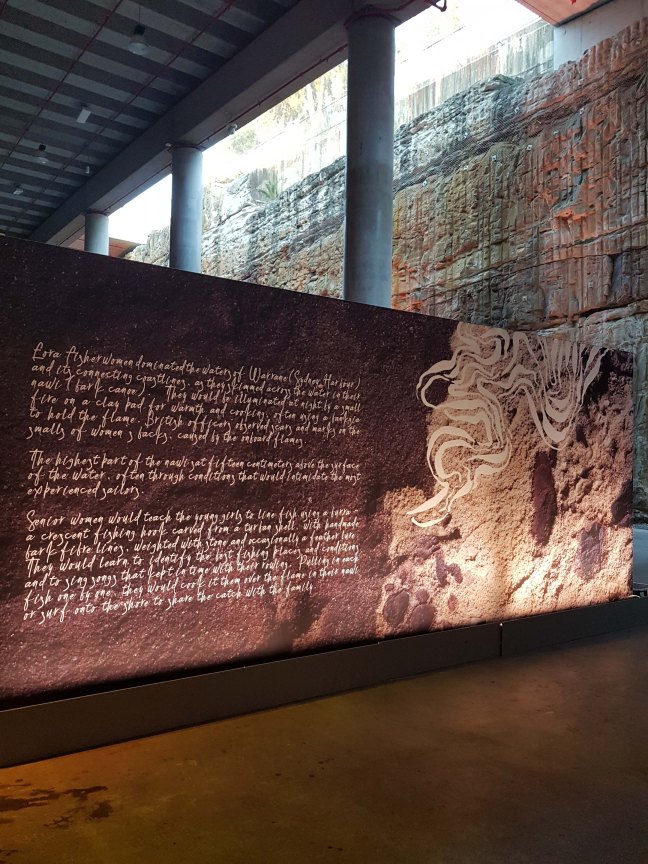 Eora fisherwomen dominated the waters of Warrane (Sydney Harbour)
and its connecting coastlines, as they skimmed across the water in their
nawi (bark canoe). They would be illuminated at night by a small
fire on a clay pad for warmth and cooking, often using a banksia
to hold the flame. British officers observed scars and marks on the
smalls of women's backs, caused by the onboard flames.
The highest part of the nawi sat fifteen centimeters above the surface
of the water, often through conditions that would intimidate the most
experienced sailors.
Senior women would teach the young girls to line fish using a burra -
a crescent fishing hook carved from a turban shell, with handmade
bark fibre lines, weighted with stone and occasionally a feather lure.
They would learn to identify the best fishing places and conditions
and to sing songs that kept in time with their rowing. Pulling in each
fish one by one, they would cook it then over the flame in their nawi
or surf onto the shore to share the catch with the family.